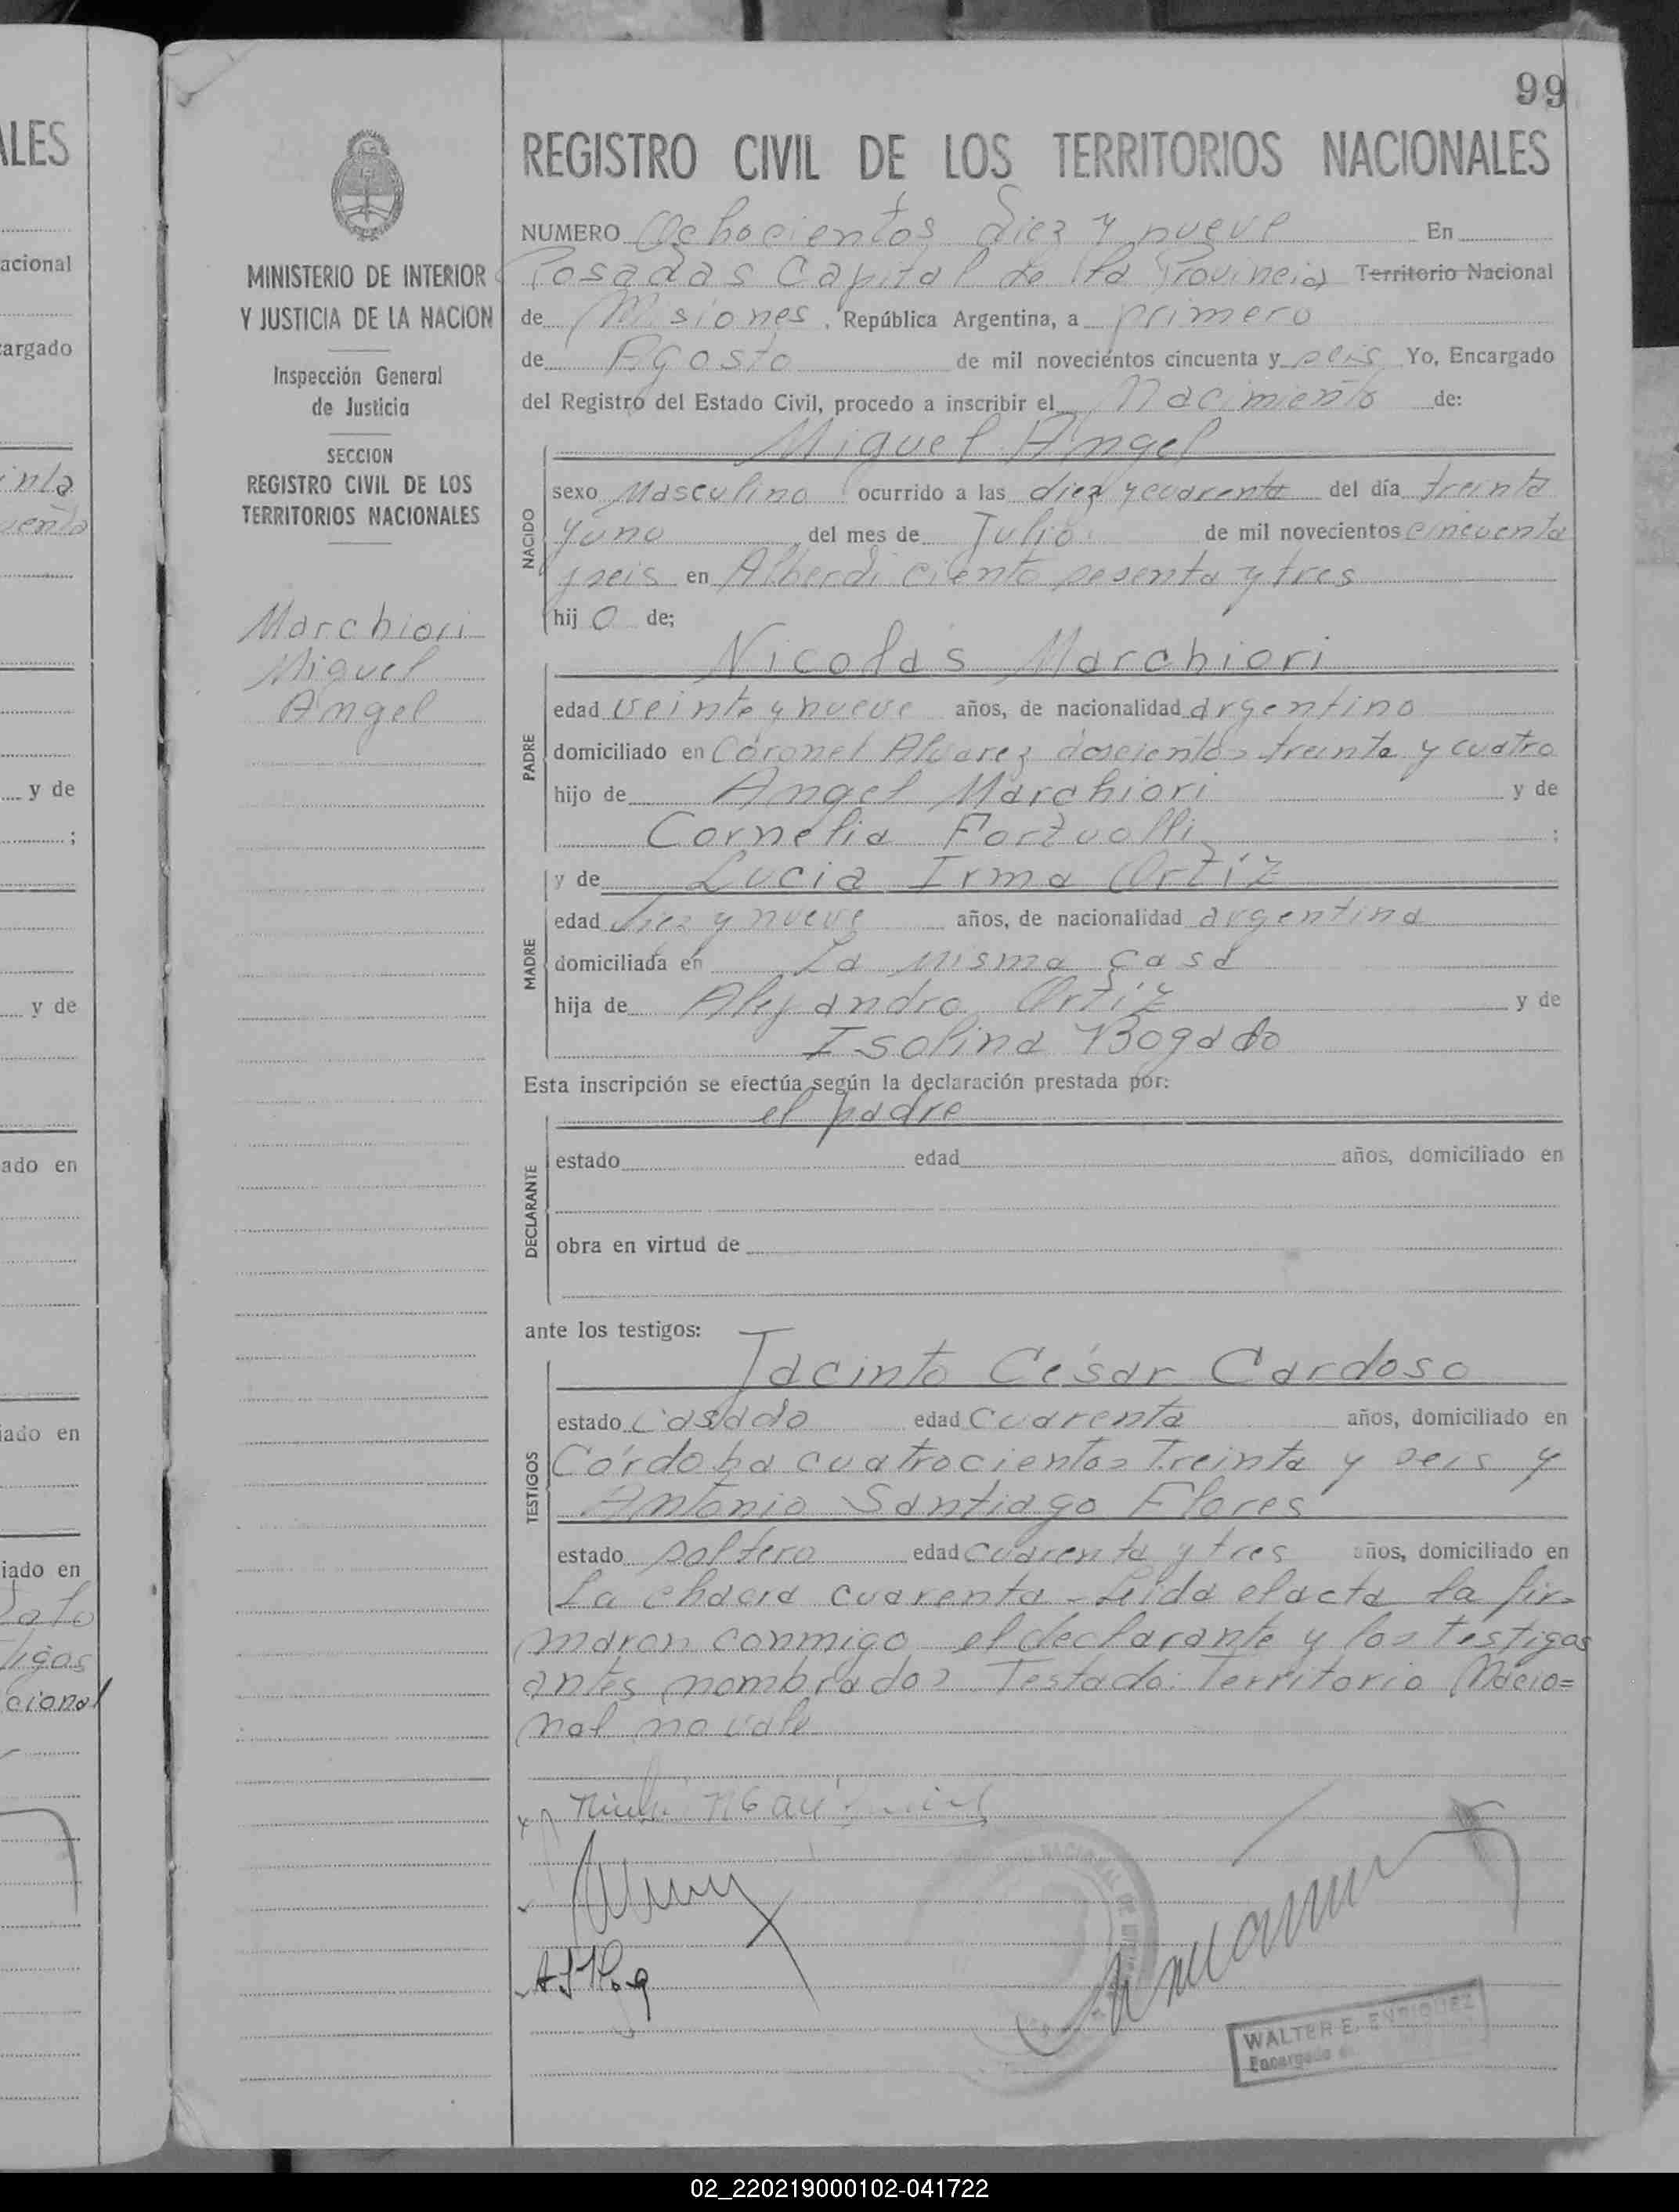 99
ALES
acional
cargado
inta
uenta
y de
;
y de
ado en
iado en
iado en
tigos
cional
MINISTERIO DE INTERIOR
Y JUSTICIA DE LA NACION
Inspección General
de Justicia
SECCION
REGISTRO CIVIL DE LOS
TERRITORIOS NACIONALES
Marchiori
Miguel
Angel
REGISTRO CIVIL DE LOS TERRITORIOS NACIONALES
NUMERO Ochocientos diez y nueve En
Posadas Capital de la Provincia Territorio Nacional
de Misiones, República Argentina, a primero
de Agosto de mil novecientos cincuenta y seis Yo, Encargado
del Registro del Estado Civil, procedo a inscribir el Nacimiento de:
Miguel Angel
NACIDO
sexo Masculino ocurrido a las diez y cuarenta del día treinta
y uno del mes de Julio de mil novecientos cincuenta
y seis en Alberdi ciento sesenta y tres
hijo de;
Nicolás Marchiori
PADRE
edad veinte y nueve años, de nacionalidad argentino
domiciliado en Coronel Alvarez doscientos treinta y cuatro
hijo de Angel Marchiori y de
Cornelia Fortuolli ;
y de Lucia Irma Ortíz
MADRE
edad diez y nueve años, de nacionalidad argentina
domiciliada en La misma casa
hija de Alejandro Ortíz y de
Isolina Bogado
Esta inscripción se efectúa según la declaración prestada por:
el padre
DECLARANTE
estado edad años, domiciliado en
obra en virtud de
ante los testigos:
Jacinto César Cardoso
TESTIGOS
estado casado edad cuarenta años, domiciliado en
Córdoba cuatrocientos treinta y seis y
Antonio Santiago Flores
estado soltero edad cuarenta y tres años, domiciliado en
La chacra cuarenta - Leida el acta la fir=
maron conmigo el declarante y los testigos
antes nombrados. Testado: Territorio Nacio=
nal no vale
WALTER E. ENRIQUEZ
Encargado
02_220219000102-041722